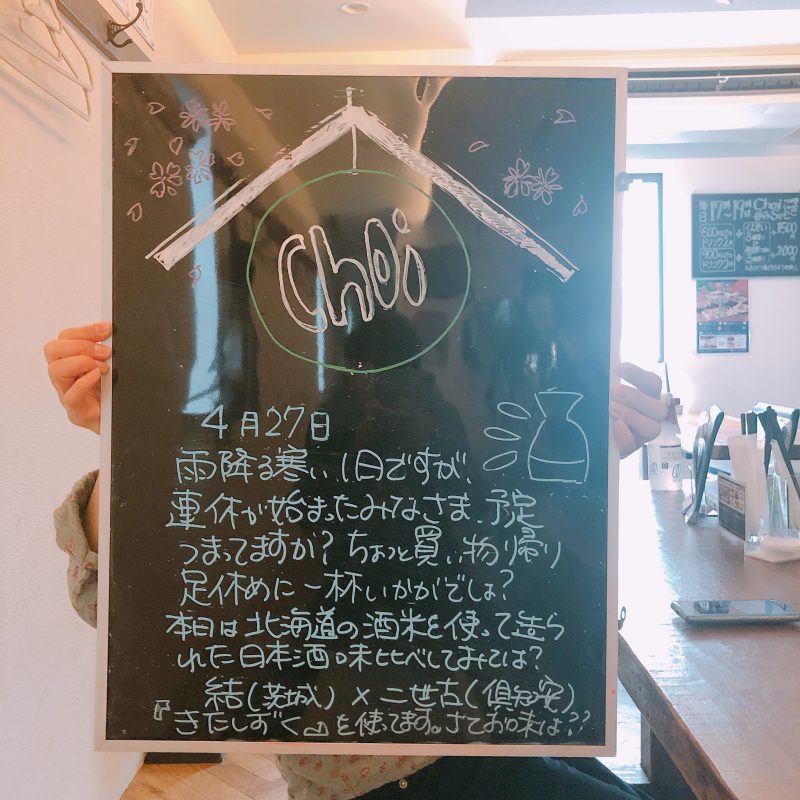 Choi
4月27日
雨降る寒い1日ですが、
連休が始まったみなさま、予定
つまってますか?ちょっと買い物帰り
足休めに一杯いかがでしょ?
本日は北海道の酒米を使って造ら
れた日本酒味比べしてみては?
結(茨城)×二世古(倶知安)
『きたしずく』を使ってます。さてお味は??
毎日17時〜19時 Choi
600
ドリンク2杯
1500
900
ドリンク2杯
2000